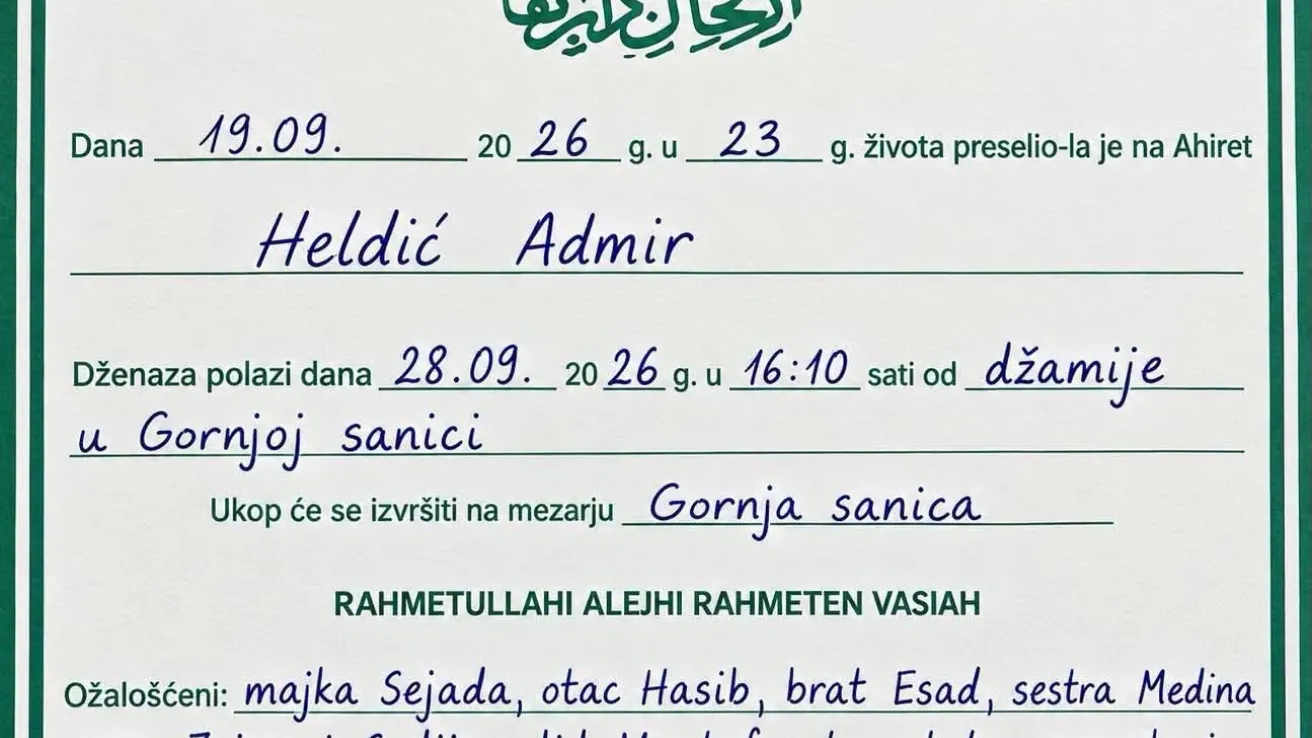 Dana 19.09. 2026 g. u 23 g. života preselio-la je na Ahiret
Heldić Admir
Dženaza polazi dana 28.09. 2026 g. u 16:10 sati od džamije
u Gornjoj sanici
Ukop će se izvršiti na mezarju Gornja sanica
RAHMETULLAHI ALEJHI RAHMETEN VASIAH
Ožalošćeni: majka Sejada, otac Hasib, brat Esad, sestra Medina